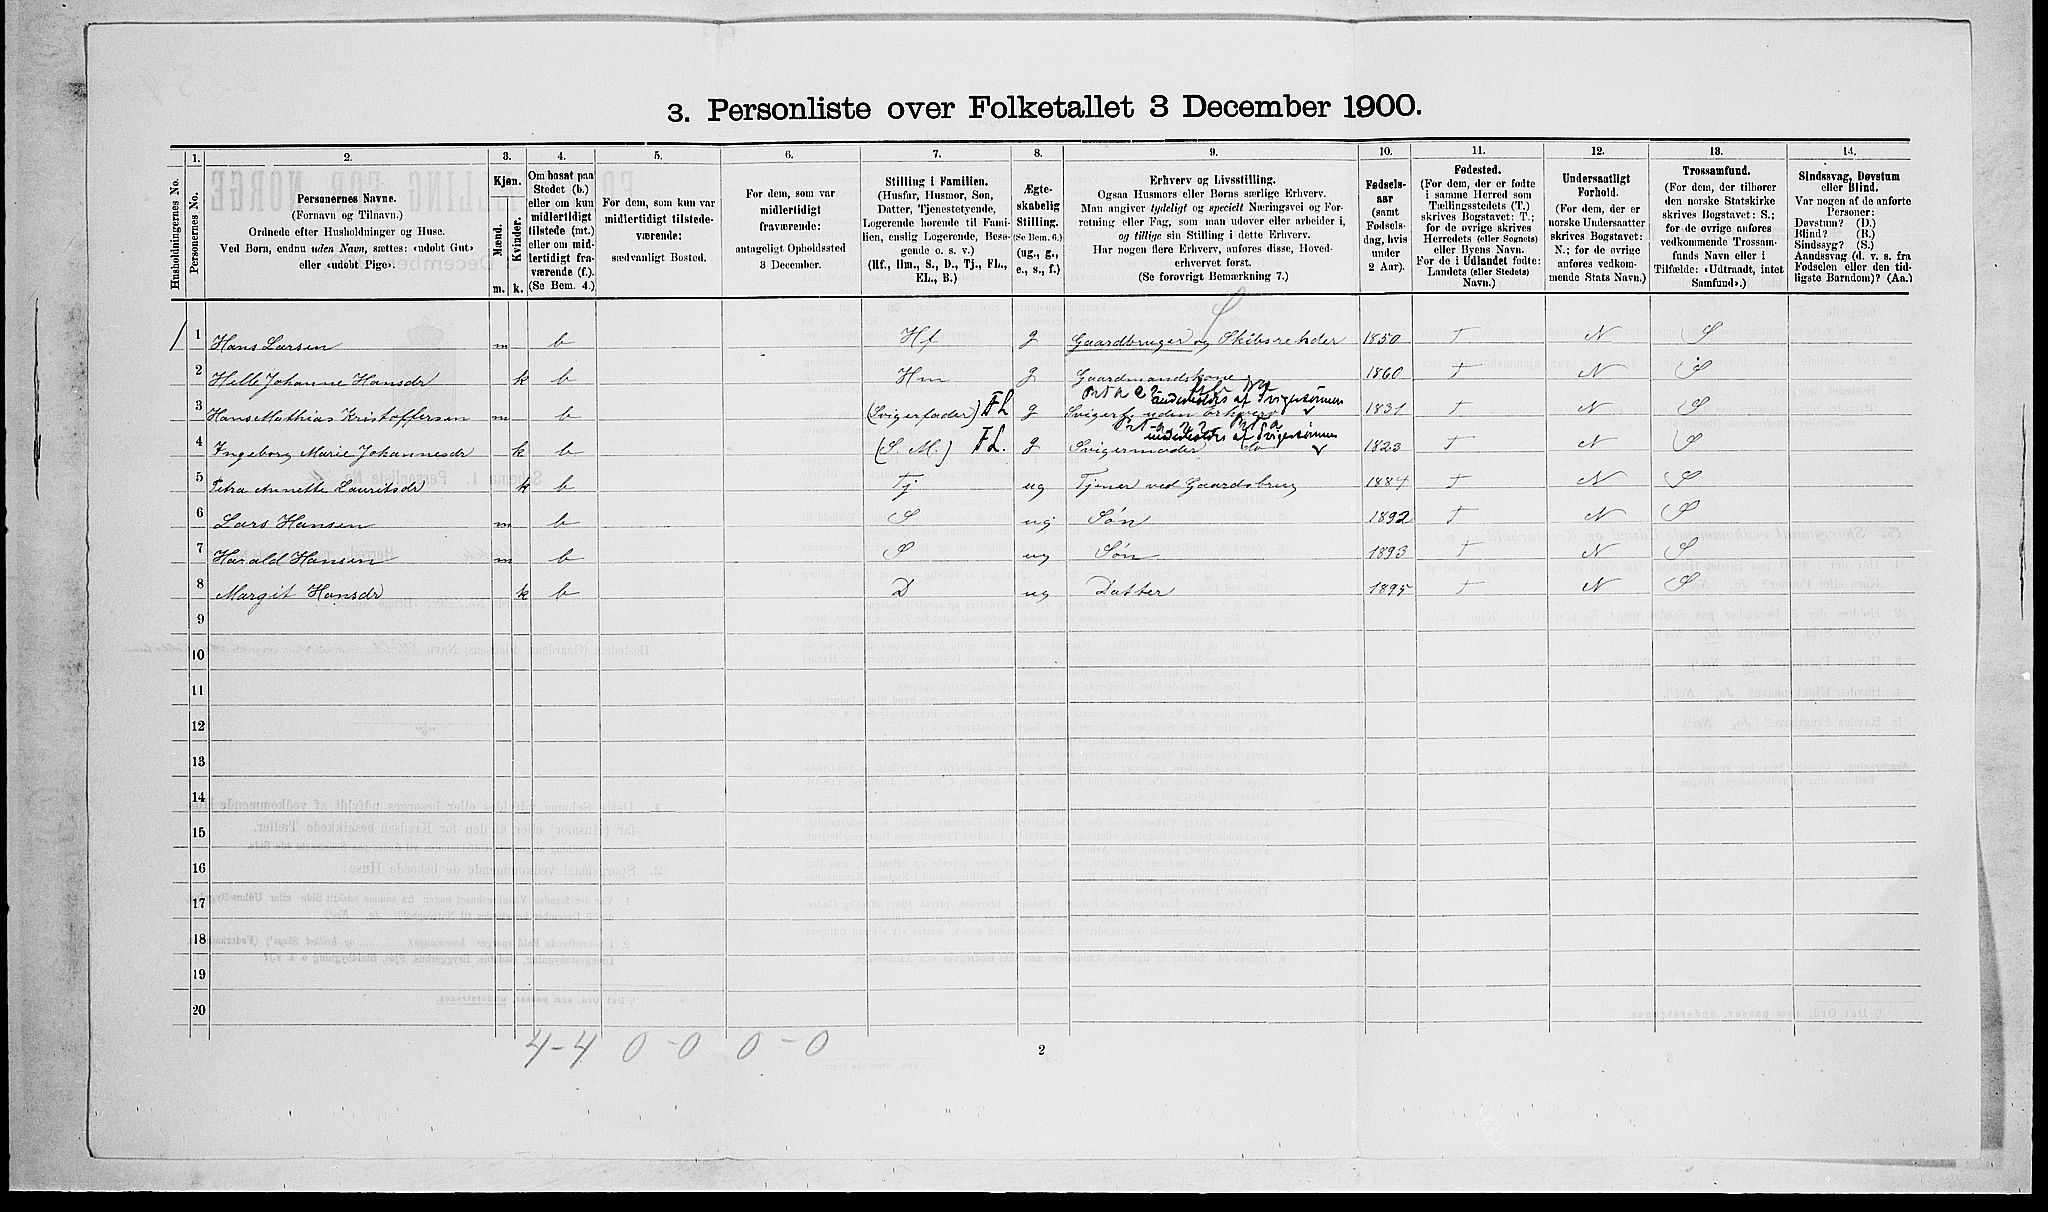 3. Personliste over Folketallet 3 December 1900.
Husholdningernes No.
1.
Personernes No.
2.
Personernes Navne.
(Fornavn og Tilnavn.)
Ordnede efter Husholdninger og Huse.
Ved Børn, endnu uden Navn, sættes: «udøbt Gut»
eller «udøbt Pige».
3.
Kjøn.
Mænd.
Kvinder.
m. k.
4.
Om bosat paa
Stedet (b.)
eller om kun
midlertidigt
tilstede (mt.)
eller om mid-
lertidigt fra-
værende (f.).
(Se Bem. 4.)
5.
For dem, som kun var
midlertidigt tilstede-
værende:
sædvanligt Bosted.
6.
For dem, som var
midlertidigt
fraværende:
antageligt Opholdssted
3 December.
7.
Stilling i Familien.
(Husfar, Husmor, Søn,
Datter, Tjenestetyende,
Logerende hørende til Fami-
lien, enslig Logerende, Besø-
gende o. s. v.)
(Hf., Hm., S., D., Tj., FL.,
EL., B.)
8.
Ægte-
skabelig
Stilling.
(Se Bem. 6.)
(ug., g.,
e., s., f.)
9.
Erhverv og Livsstilling.
Ogsaa Husmors eller Børns særlige Erhverv.
Man angiver tydeligt og specielt Næringsvei og For-
retning eller Fag, som man udøver eller arbeider i,
og tillige sin Stilling i dette Erhverv.
Har nogen flere Erhverv, anføres disse, Hoved-
erhvervet først.
(Se forøvrigt Bemærkning 7.)
10.
Fødsels-
aar
(samt
Fødsels-
dag, hvis
under
2 Aar).
11.
Fødested.
(For dem, der er fødte
i samme Herred som
Tællingsstedets (T.)
skrives Bogstavet: T.;
for de øvrige skrives
Herredets (eller Sognets)
eller Byens Navn.
For de i Udlandet fødte:
Landets (eller Stedets)
Navn.)
12.
Undersaatligt
Forhold.
(For dem, der er
norske Undersaatter
skrives Bogstavet:
N.; for de øvrige
anføres vedkom-
mende Stats Navn.)
13.
Trossamfund.
(For dem, der tilhører
den norske Statskirke
skrives Bogstavet: S.;
for de øvrige anføres
vedkommende Trossam-
funds Navn eller i
Tilfælde: «Udtraadt, intet
Samfund».)
14.
Sindssvag, Døvstum
eller Blind.
Var nogen af de anførte
Personer:
Døvstum? (D.)
Blind? (B.)
Sindssyg? (S.)
Aandssvag (d. v. s. fra
Fødselen eller den tid-
ligste Barndom)? (Aa.)
1 Hans Larsen m b Hf g Gaardbruger og Skibsreheder 1850 T N S
2 Helle Johanne Hansdr k b Hm g Gaardmandskone 1860 T N S
underholdes af Svigersønnen
3 Hans Mathias Kristoffersen m b (Svigerfader) FL g Svigerf. uden Erhverv 1831 T N S
underholdes af Svigersønnen
4 Ingeborg Marie Johannesdr k b (S. M.) FL. g Svigermoder do 1823 T N S
5 Petra Annette Lauritsdr k b Tj ug Tjener ved Gaardsbrug 1884 T N S
6 Lars Hansen m b S ug Søn 1892 T N S
7 Harald Hansen m b S ug Søn 1893 T N S
8 Margit Hansdr k b D ug Datter 1895 T N S
9
10
11
12
13
14
15
16
17
18
19
20
4-4 0-0 0-0
2